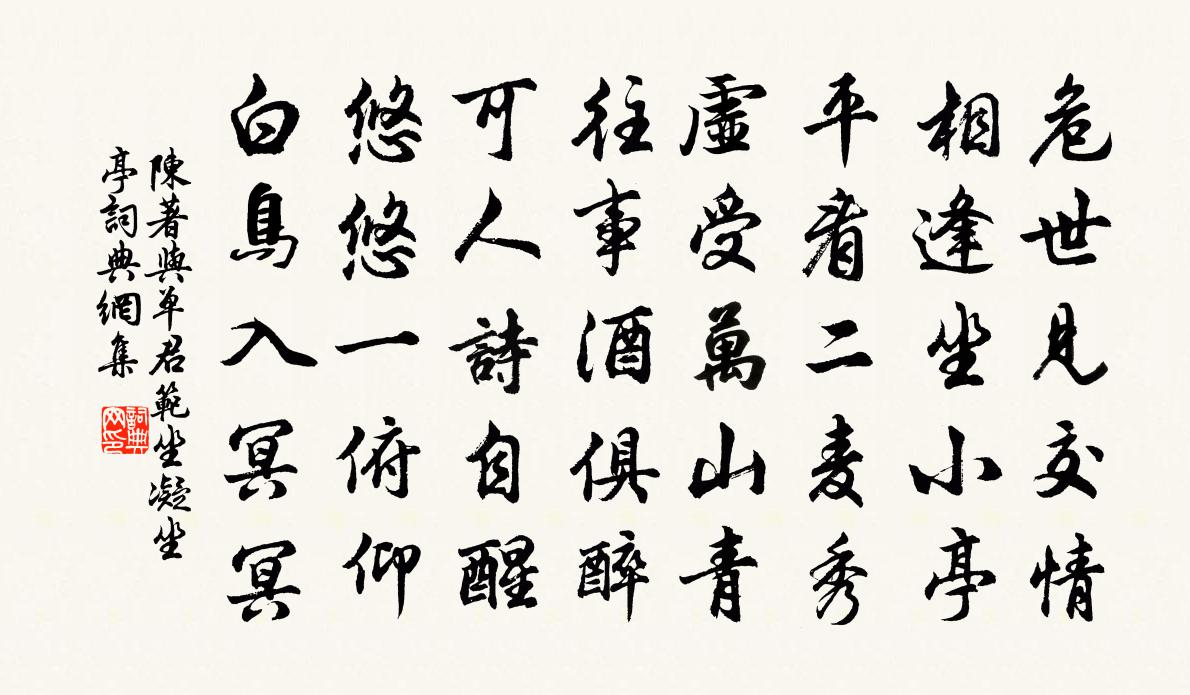 危世見交情
相逢坐小亭
平看二麦秀
虛受萬山青
往事酒俱醉
可人詩自醒
悠悠一俯仰
白鳥入冥冥
陳著與单君範坐凝坐
亭詞典網集
詞典
网印